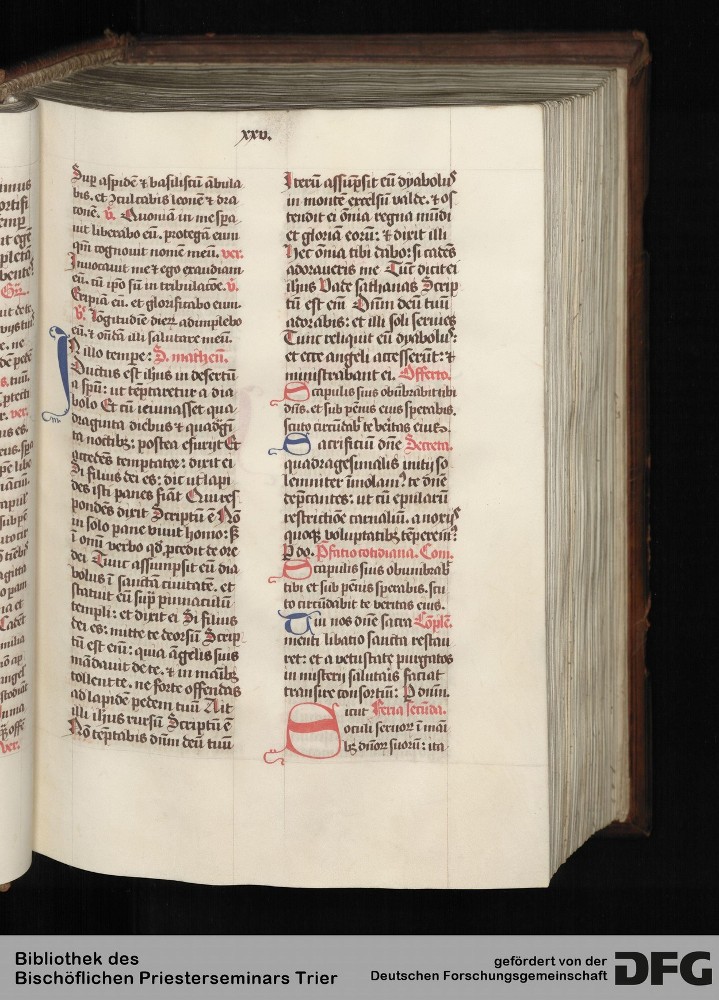 xxv.
Sup̱ aspidē ⁊ basiliscū ābula
bis. et ↄculcabis leonē ⁊ dra
conē. v̄. Quoniā in me spa
uit liberabo eū. protegā eum
qm̄ cognouit nomē meū. ver.
Inuocauit me ⁊ ego exaudiam
eū. cū ip̄o sū in tribulatōe. v̄.
Eripiā eū. et glorificabo eum.
v̄. lōgitudīe dierꝝ adimplebo
eū. ⁊ ondā illi salutare meū.
In illo tempe: S. matheū.
Ductus est ihus in desertū
a spū: ut tēptaretur a dia
bolo Et cū ieiunasset qua
draginta diebus ⁊ quadgī
ta noctibꝫ: postea esurijt Et
accedēs temptator: dixit ei
Si filius dei es: dic ut lapi
des isti panes fiāt Qui res
pondēs dixit Scriptū ē Nō
in solo pane viuit homo: sꝫ
ī om̄i verbo qd̄ ꝓcedit de ore
dei Tunc assumpsit eū dia
bolus ī sanctā ciuitatē. et
statuit eū sup̱ pinnaculū
templi: et dixit ei Si filius
dei es: mitte te deorsū Scrip
tū est eīn: quia āgelis suis
mādauit de te. ⁊ in māibꝫ
tollent te. ne forte offendas
ad lapidē pedem tuū Ait
illi ihus rursū Scriptū ē
Nō tēptabis dnm̄ deū tuū
Iterū assūpsit eū dyabolꝰ
in monte excelsū valde. ⁊ os
tendit ei om̄ia regna mūdi
et gloriā eorū: ⁊ dixit illi
Hec om̄ia tibi dabo: si cadēs
adoraueris me Tūc dicit ei
ihus Vade sathanas Scrip
tū est eīn Dnm̄ deū tuū
adorabis: et illi soli seruies
Tunc reliquit eū dyabolꝰ:
et ecce angeli accesserūt: ⁊
ministrabant ei. Offerto.
Scapulis suis obūbrabit tibi
dn̄s. et sub pēnis eius sperabis.
scuto circūdabit te veritas eius.
Sacrificiū dn̄e Secreta.
quadragesimalis initij so
lemniter īmolamꝰ te dn̄e
dep̱cantes: ut cū epularū
restrictiōe carnaliū. a noxijs
quoqꝫ voluptatibꝫ tēperemꝰ
P do. P̄fatio cotidiana. Com.
Scapulis suis obumbrabit
tibi et sub pēnis sperabis. scu
to circūdabit te veritas eius.
Tui nos dn̄e sacra Cōple.
menti libatio sancta restau
ret: et a vetustate purgatos
in misterij salutaris faciat
transire consortiū: P dnm̄.
Sicut Feria secūda.
oculi seruoꝝ ī māi
bꝫ dn̄oꝝ suorū: ita
Bibliothek des
Bischöflichen Priesterseminars Trier
gefördert von der
Deutschen Forschungsgemeinschaft
DFG